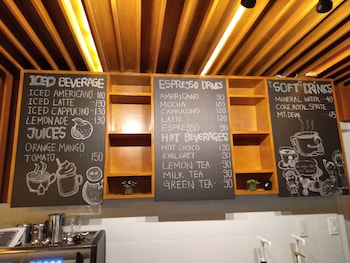 ICED BEVERAGE
ICED AMERICANO 120
ICED LATTE 130
ICED CAPPUCINO 130
LEMONADE 90
JUICES
ORANGE MANGO
TOMATO 150
ESPRESSO DRINKS
AMERICANO 90
MOCHA 120
CAPPUCCINO 120
LATTE 120
ESPRESSO 90
HOT BEVERAGES
HOT CHOCO 130
EARLGREY 90
LEMON TEA 90
MILK TEA 90
GREEN TEA 90
SOFT DRINKS
MINERAL WATER 40
COKE, ROYAL, SPRITE
MT. DEW